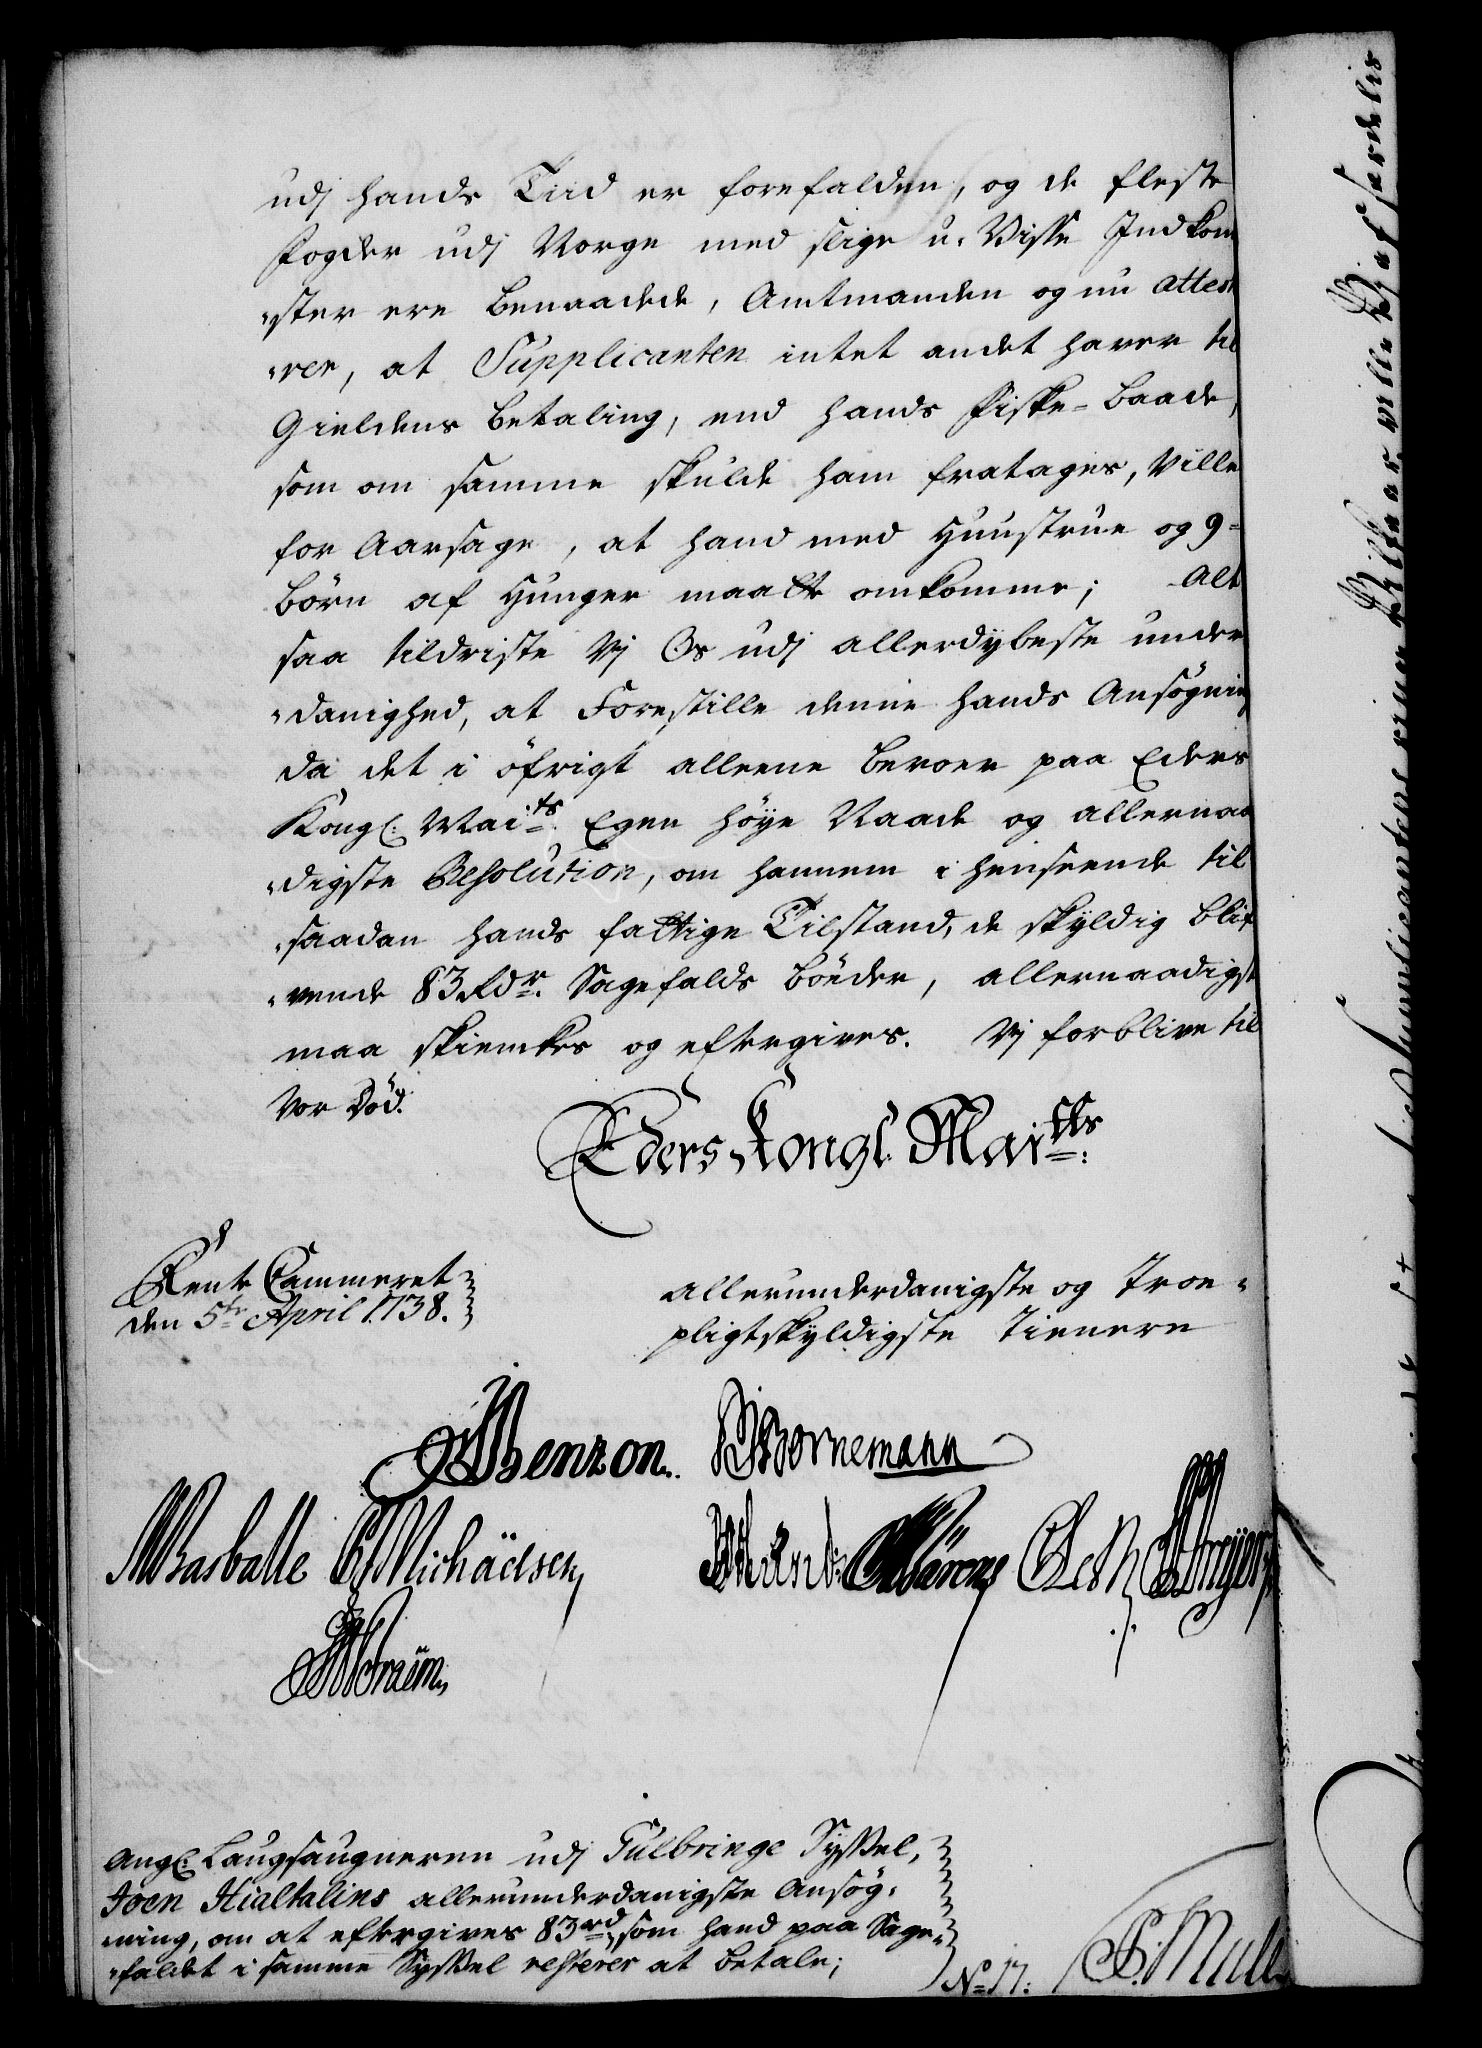 udj hands Tiid er forefalden, og de fleste
Fogder udj Norge med slige u-Visse Indkom
"ster ere benaadede, Amtmanden og nu atteste
"rer, at Supplicanten intet andet haver til
Gieldens betaling, end hands Fiske-baade,
som om samme skulde ham fratages, Ville
for Aarsage, at hand med Huustrue og 9-
børn af Hunger maatte omkomme; Alt
saa tildriste Vj Os udj allerdybeste under
"danighed, at Forestille denne hands Ansøgning
da det i øfrigt alleene beroer paa Eders
Kongl: Maits. Egen høye Naade og allernaa
"digste Resolution, om hannem i henseende til
"saadan hands fattige Tilstand, de skyldig blif
"vende 83 Rdr. Sagefalds bøder, allernaadigst
maa skienkes og eftergives. Vj forblive til
Vor Død.
Eders Kongl. Maitts:
Rente Cammeret
den 5te April 1738.
allerunderdanigste og Troe-
pligtskyldigste Tienere
Benzon. Bornemann
Basballe Michaelsen
Angl: Laugsaugneren udj Gulbringe Syssel,
Joen Hialtalins allerunderdanigste Ansøg-
"ning, om at eftergives 83 rd, som hand paa Sage-
"faldet i samme Syssel resterer at betale;
No 17: